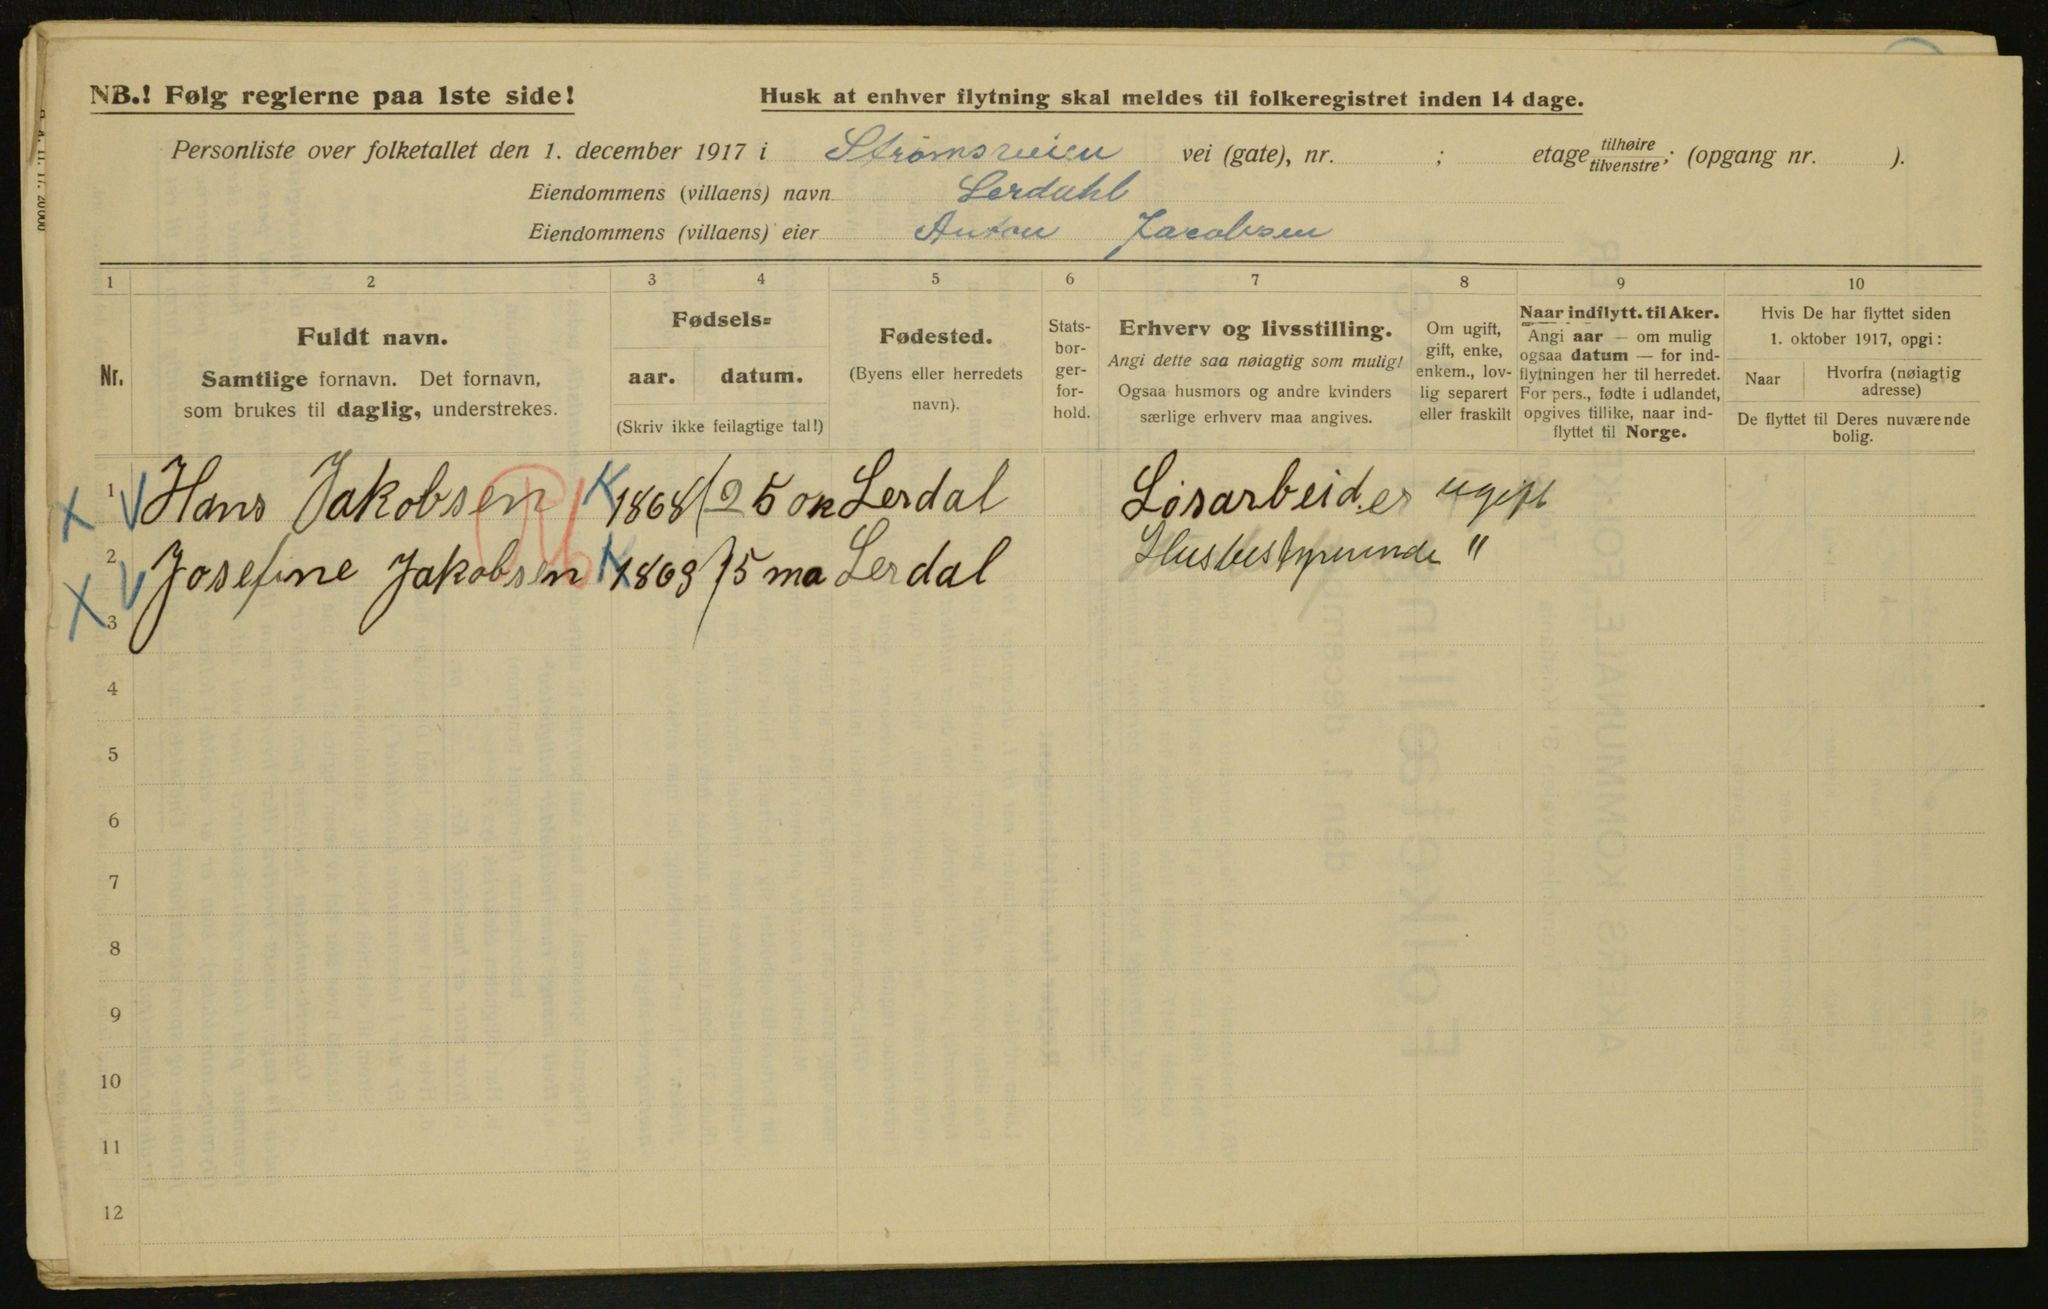 NB.! Følg reglerne paa 1ste side!
Husk at enhver flytning skal meldes til folkeregistret inden 14 dage.
Personliste over folketallet den 1. december 1917 i Strømsveien vei (gate), nr. ; etage tilhøire tilvenstre; (opgang nr. ).
Eiendommens (villaens) navn Lerdahl
Eiendommens (villaens) eier Anton Jacobsen
1 2 3 4 5 6 7 8 9 10
Nr.
Fuldt navn.
Samtlige fornavn. Det fornavn,
som brukes til daglig, understrekes.
Fødsels=
aar. datum.
(Skriv ikke feilagtige tal!)
Fødested.
(Byens eller herredets
navn).
Stats-
bor-
ger-
for-
hold.
Erhverv og livsstilling.
Angi dette saa nøiagtig som mulig!
Ogsaa husmors og andre kvinders
særlige erhverv maa angives.
Om ugift,
gift, enke,
enkem., lov-
lig separert
eller fraskilt
Naar indflytt. til Aker.
Angi aar — om mulig
ogsaa datum — for ind-
flytningen her til herredet.
For pers., fødte i udlandet,
opgives tillike, naar ind-
flyttet til Norge.
Hvis De har flyttet siden
1. oktober 1917, opgi:
Naar
Hvorfra (nøiagtig
adresse)
De flyttet til Deres nuværende
bolig.
X V 1 Hans Jakobsen K 1868 25 ok Lerdal Løsarbeider ugift
X V 2 Josefine Jakobsen K 1869 15 ma Lerdal Husbestyrerinde "
3
4
5
6
7
8
9
10
11
12